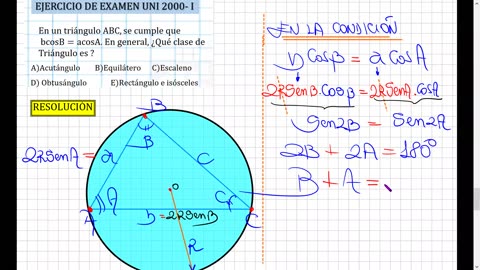 EJERCICIO DE EXAMEN UNI 2000- I
En un triángulo ABC, se cumple que
bcosB = acosA. En general, ¿Qué clase de
Triángulo es ?
A)Acutángulo B)Equilátero C)Escaleno
D) Obtusángulo E)Rectángulo e isósceles
RESOLUCIÓN
B
2RSenA = a
B
C
A
C
A
b = 2RSenB
C
O
R
EN LA CONDICIÓN
b CosB = a CosA
2RSenB.CosB = 2RSenA.CosA
Sen2B = Sen2A
2B + 2A = 180°
B + A =